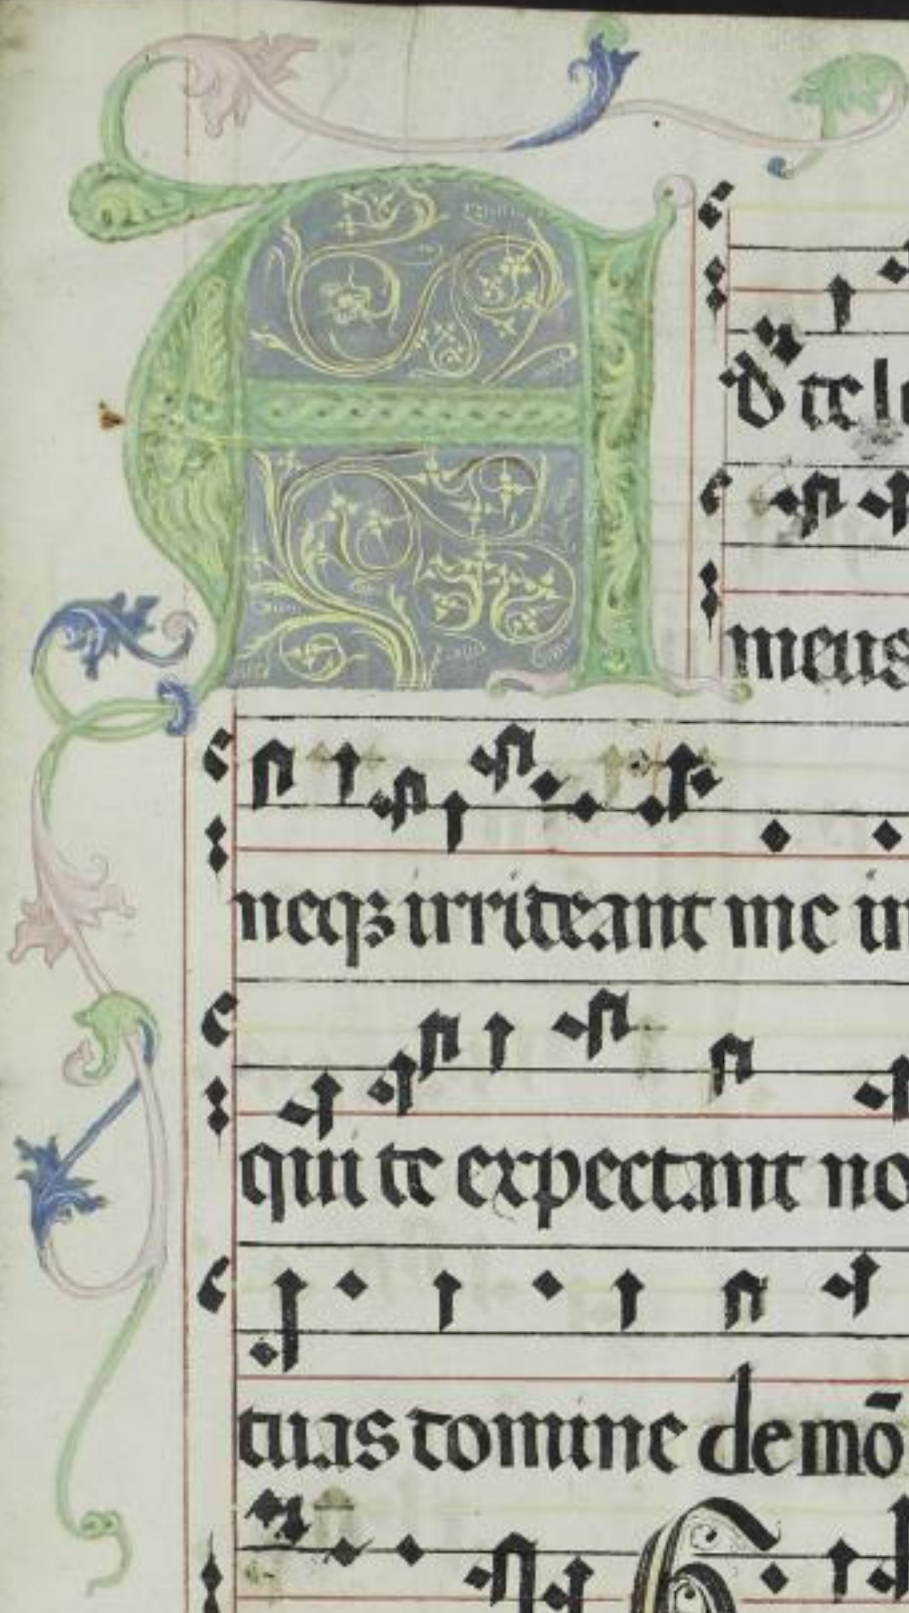 A
d te le
meus
neqꝫ irrideant me in
qui te expectant no
tuas domine de mō